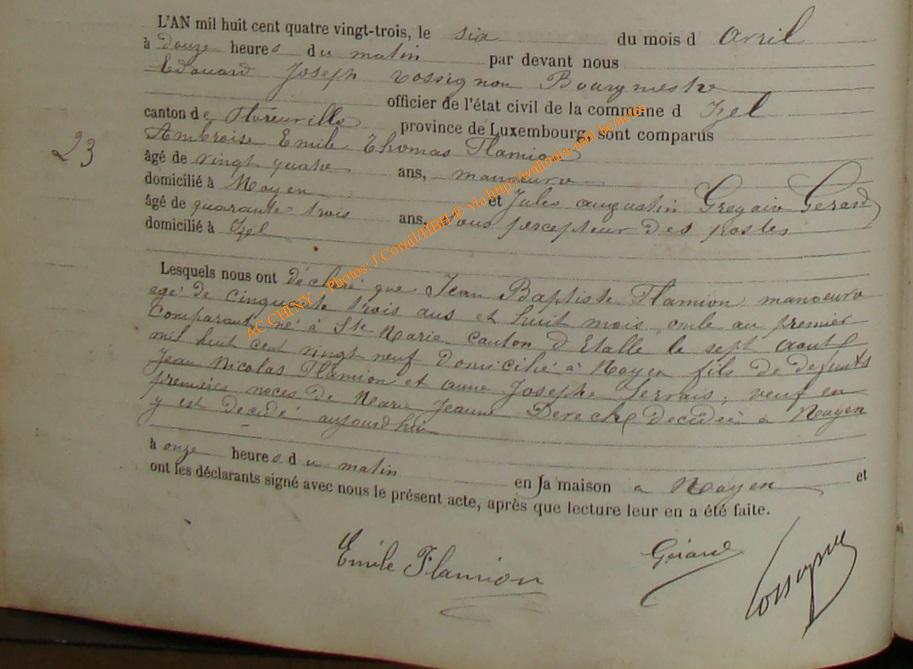 L'AN mil huit cent quatre vingt-trois, le six du mois d avril
à douze heures du matin par devant nous
Edouard Joseph Rossignon Bourgmestre
officier de l'état civil de la commune d Izel
canton de Florenville province de Luxembourg, sont comparus
23
Ambroise Emile Thomas Flamion
âgé de vingt quatre ans, manoeuvre
domicilié à Moyen et Jules augustin Grégoire Gerard
âgé de quarante-trois ans, sous percepteur des postes
domicilié à Izel
Lesquels nous ont déclaré que Jean Baptiste Flamion manoeuvre
agé de cinquante trois ans et huit mois, oncle au premier
Comparant, né à Ste Marie canton d Etalle le sept aout
mil huit cent vingt neuf domicilié à Moyen fils de defunts
Jean Nicolas Flamion et anne Josephe Servais, veuf en
premières noces de Marie Jeanne décédée à Moyen
y est décédé aujourd'hui
à onze heures du matin en sa maison a Moyen et
ont les déclarants signé avec nous le présent acte, après que lecture leur en a été faite.
Emile Flamion Gérard Rossignon
AC CHINY - Photos J.Cornil/ via http://